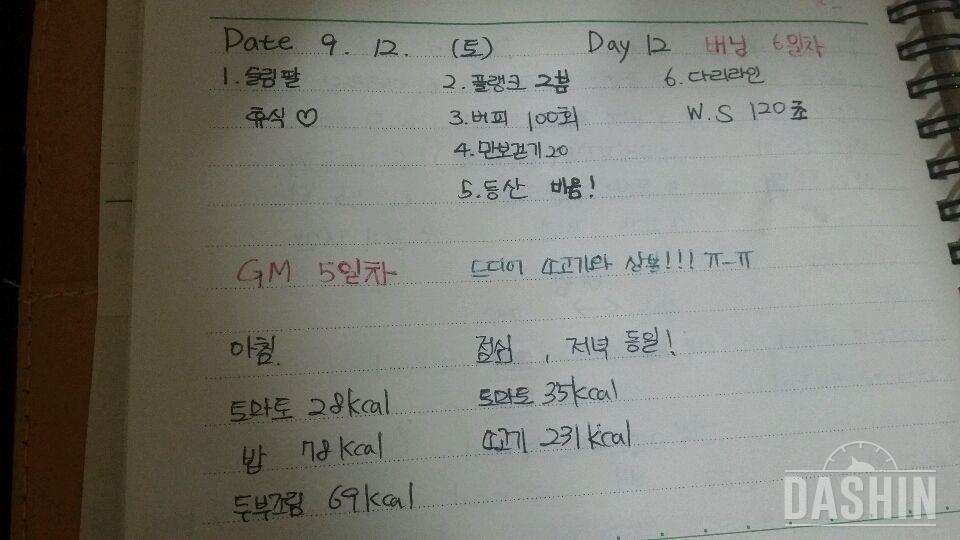 Date 9. 12. (토) Day 12 버닝 6일차
1. 슬림팔 2. 플랭크 2분 6. 다리라인
휴식♡ 3. 버피 100회 W.S 120초
4. 만보걷기 20
5. 등산 비옴!
GM 5일차 드디어 소고기와 상봉!!! ㅠ-ㅠ
아침. 점심, 저녁 동일!
토마토 28kcal 토마토 35kcal
밥 78kcal 소고기 231kcal
두부조림 69kcal
DASHIN